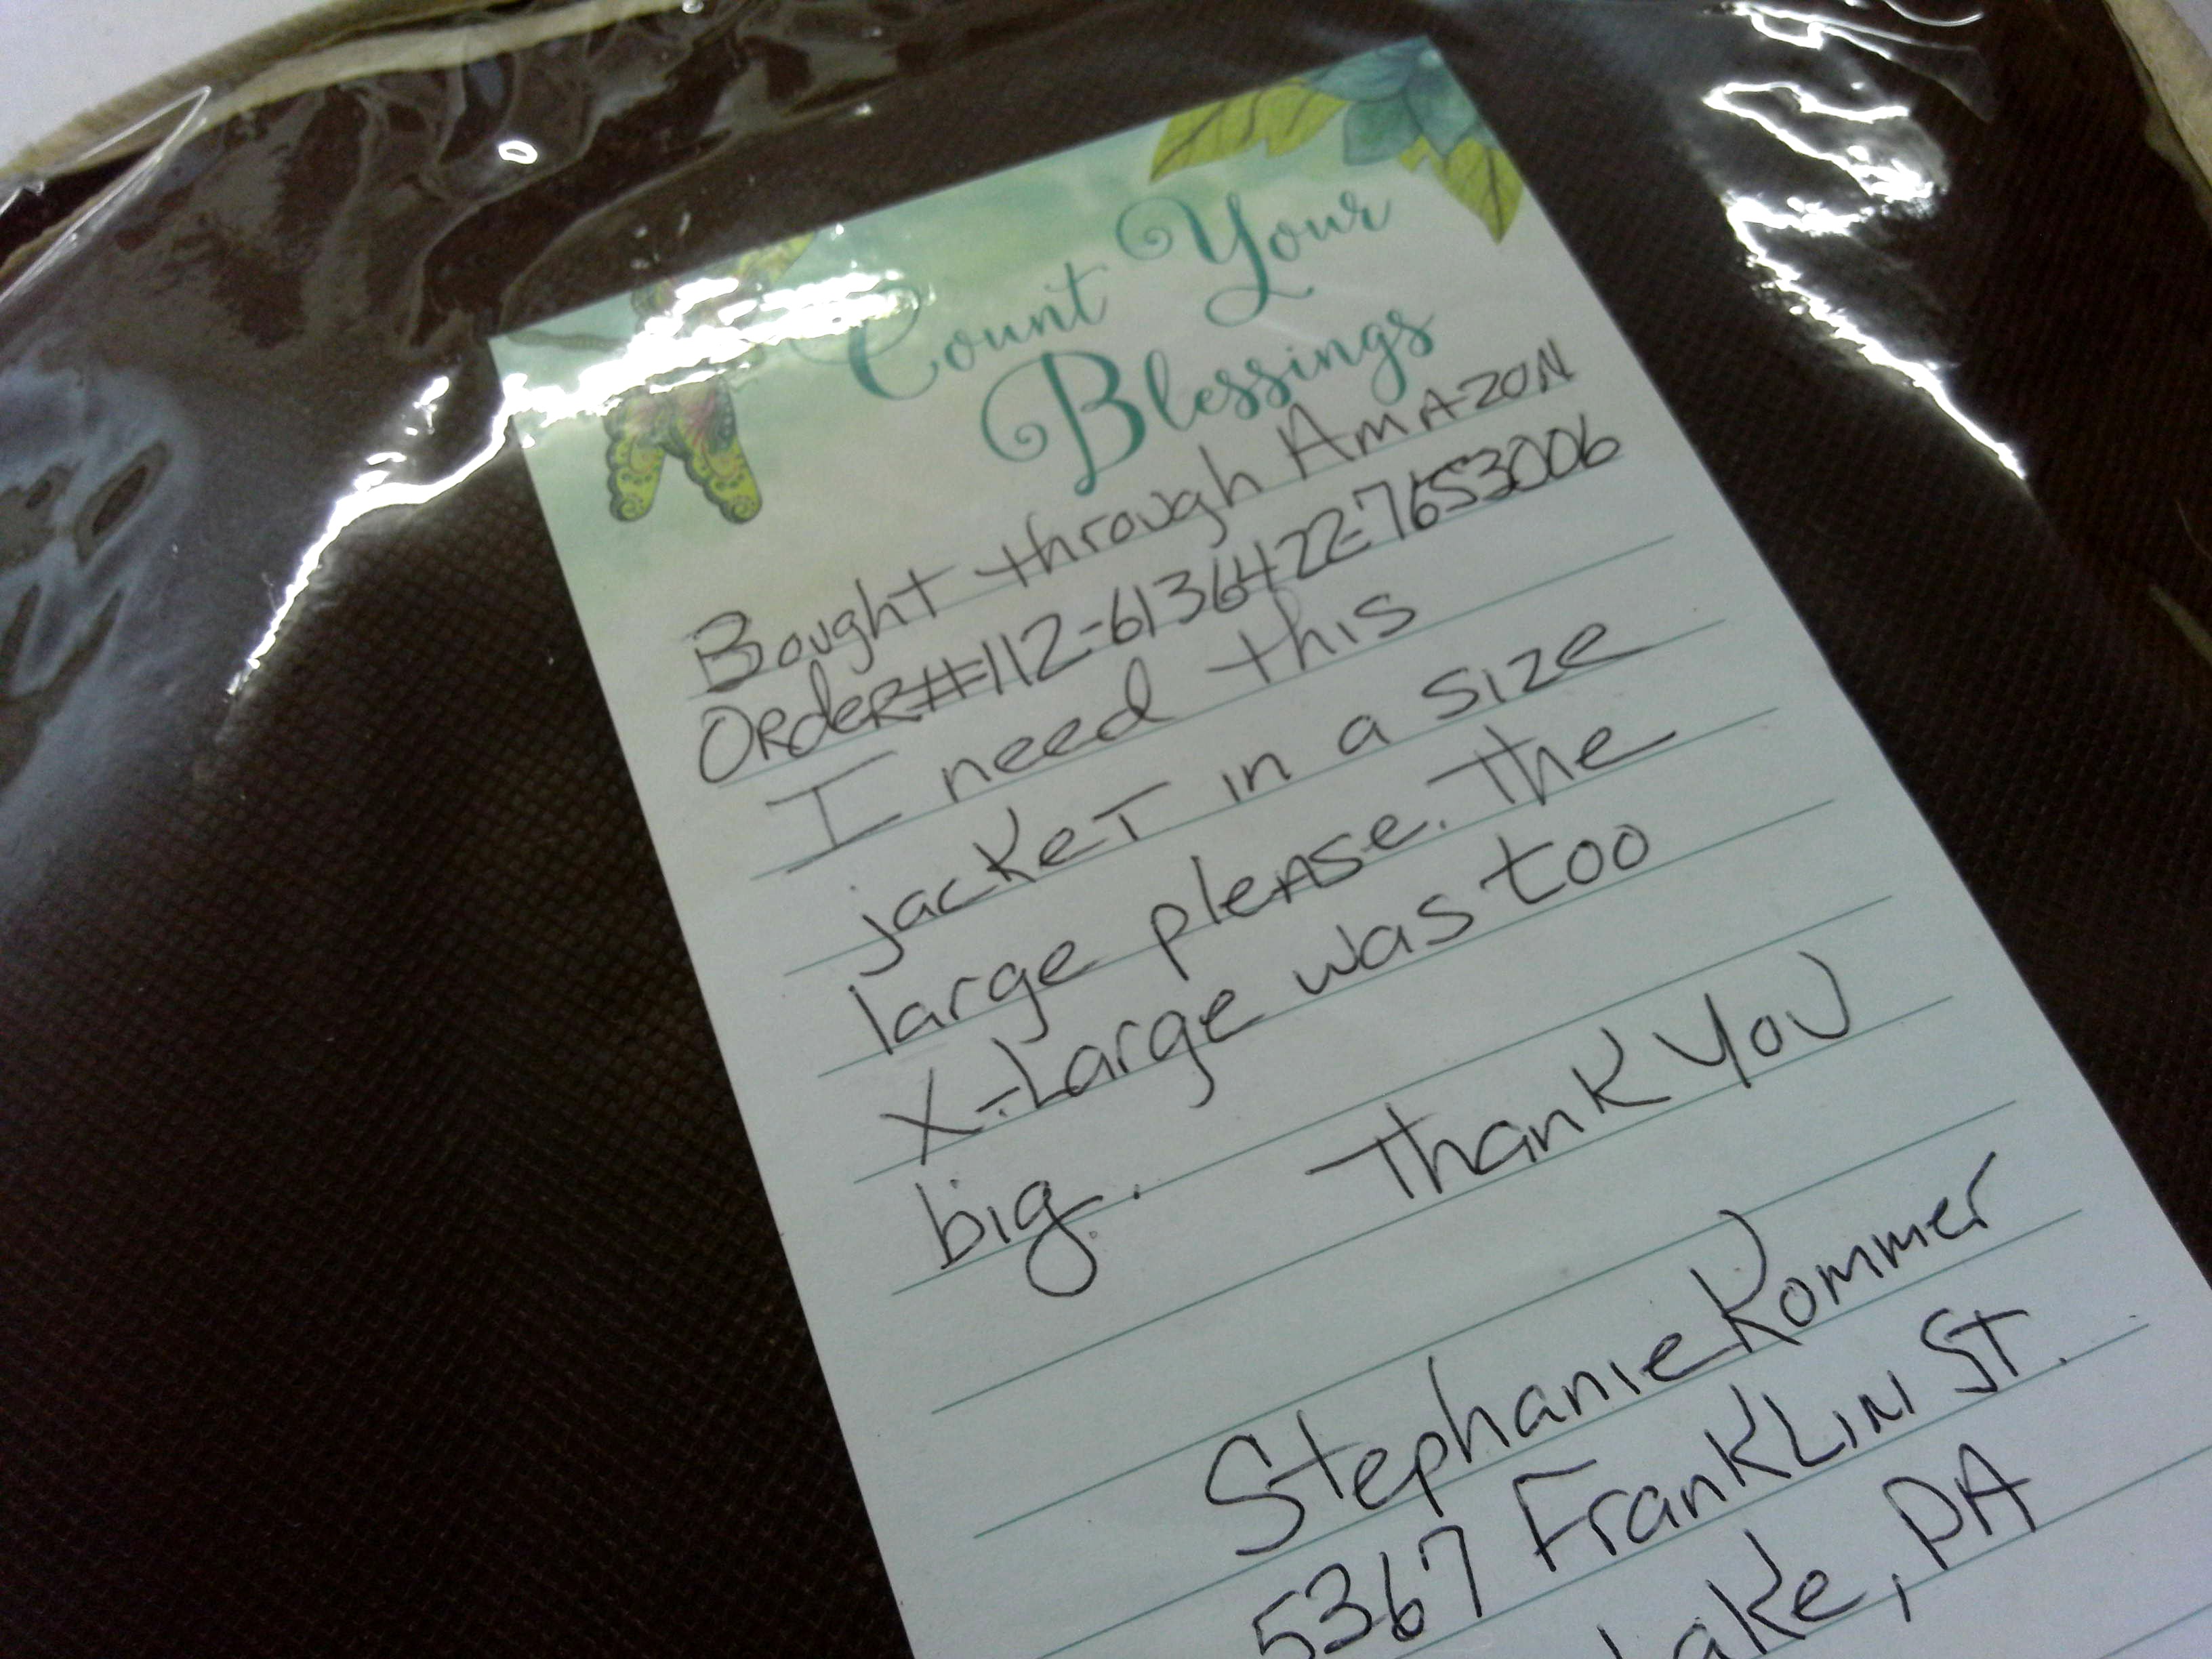 Count Your
Blessings
Bought through Amazon
Order#112-6136422-7653006
I need this
jacket in a size
large please. The
X-Large was too
big. Thank You
Stephanie Kommer
5367 Franklin St.
Lake, PA